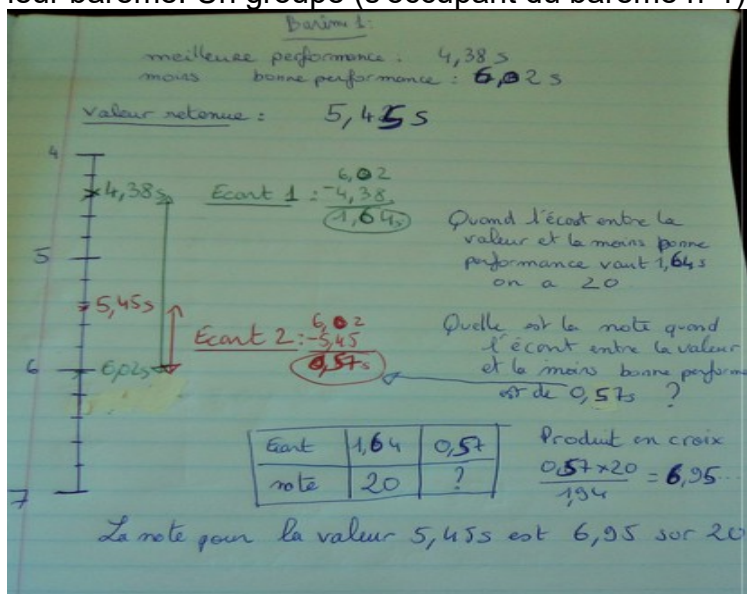 leur barème. Un groupe (s'occupant du barème n°1)
Barème 1:
meilleure performance : 4,38 s
moins bonne performance : 6,02 s
valeur retenue : 5,45 s
4
4,38s
Ecart 1 : 6,02
-4,38
1,64s
Quand l'écart entre la
valeur et la moins bonne
performance vaut 1,64s
on a 20
5
5,45s
Ecart 2 : 6,02
-5,45
0,57s
Quelle est la note quand
l'écart entre la valeur
et la moins bonne perform
est de 0,57s ?
6
6,02s
Ecart 1,64 0,57
note 20 ?
Produit en croix
0,57 x 20
1,94
= 6,95...
7
La note pour la valeur 5,45s est 6,95 sur 20